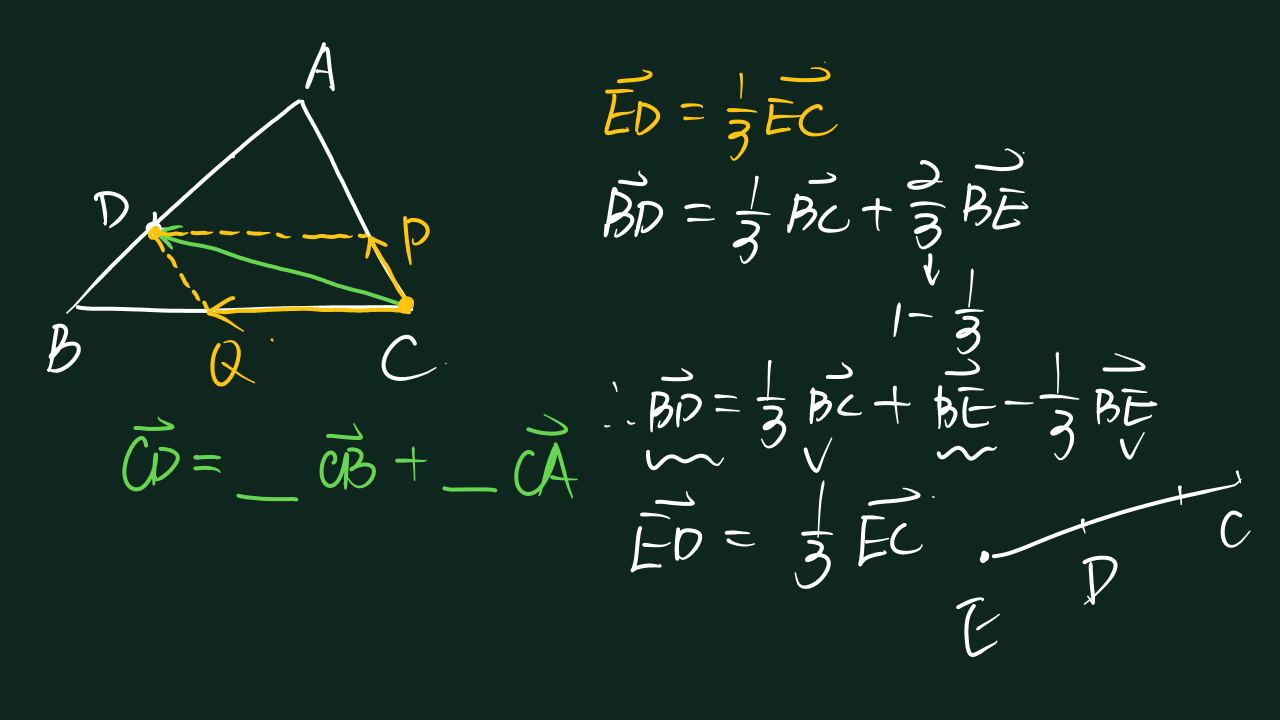 A
D
P
B
Q
C
\vec{CD} = __ \vec{CB} + __ \vec{CA}
\vec{ED} = \frac{1}{3} \vec{EC}
\vec{BD} = \frac{1}{3} \vec{BC} + \frac{2}{3} \vec{BE}
↓
1 - \frac{1}{3}
∴ \vec{BD} = \frac{1}{3} \vec{BC} + \vec{BE} - \frac{1}{3} \vec{BE}
\vec{ED} = \frac{1}{3} \vec{EC}
C
D
E